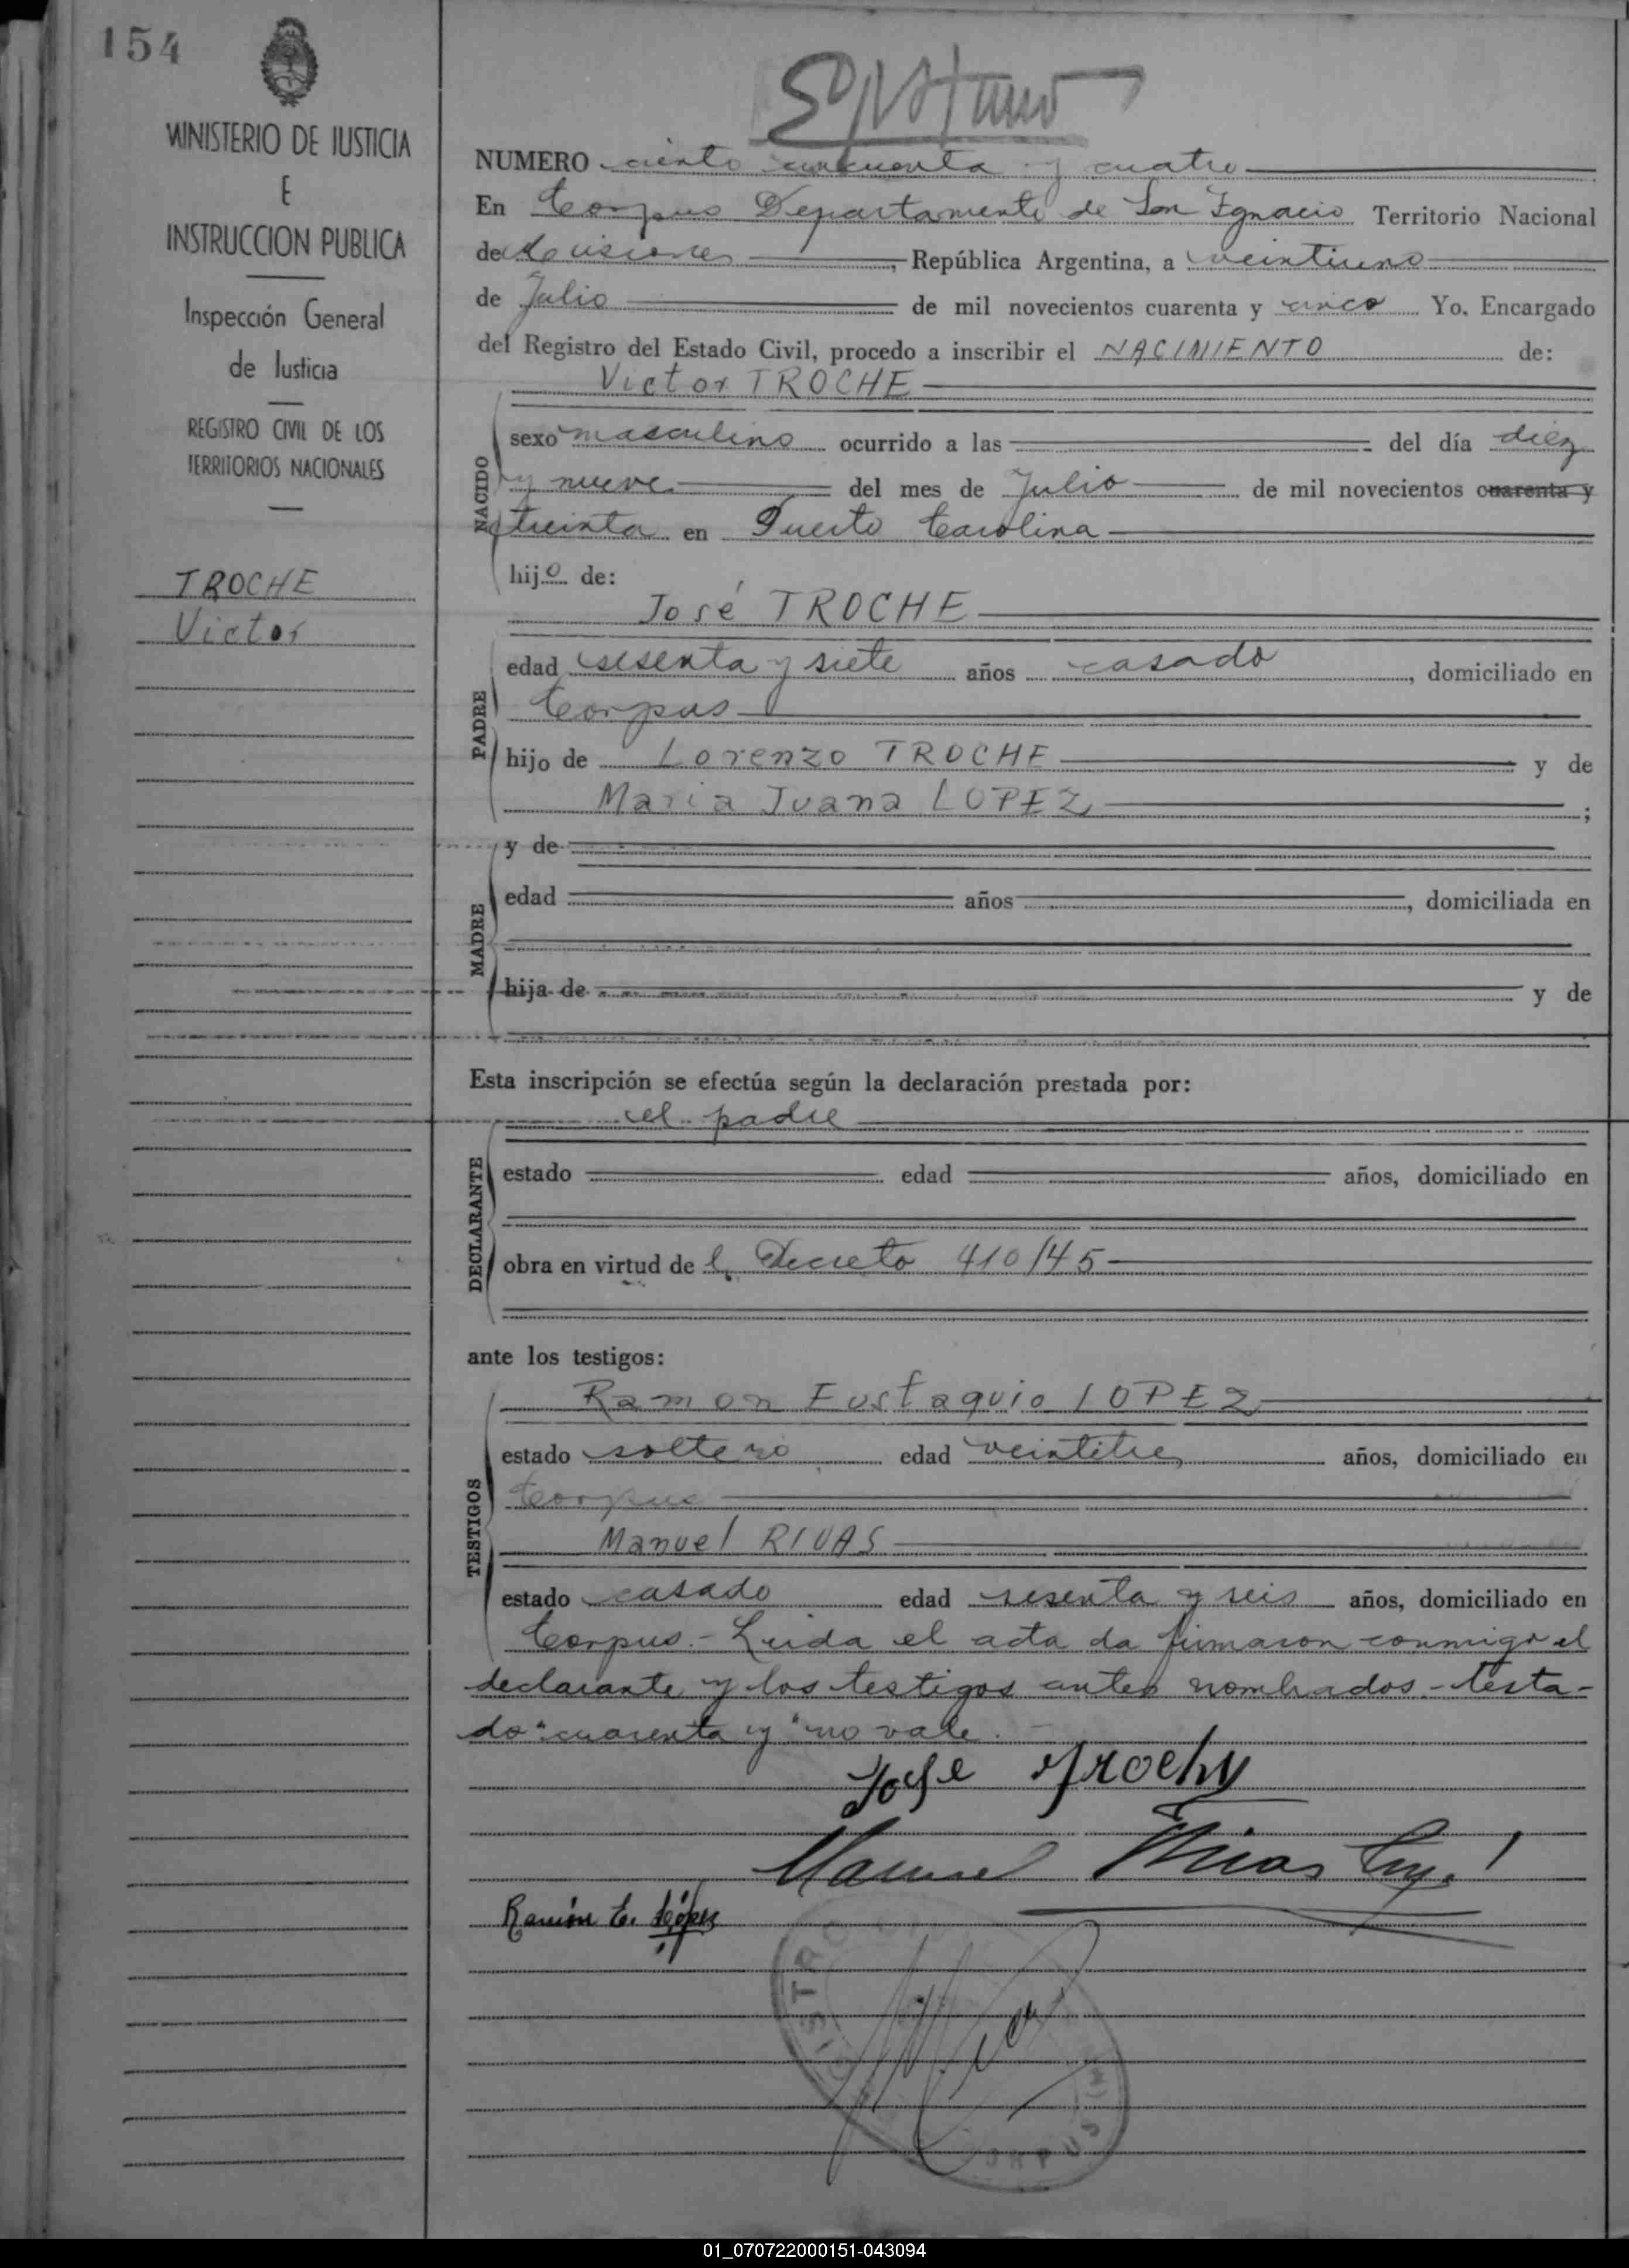 154
MINISTERIO DE JUSTICIA
E
INSTRUCCION PUBLICA
Inspección General
de Justicia
REGISTRO CIVIL DE LOS
TERRITORIOS NACIONALES
TROCHE
Victor
NUMERO ciento cincuenta y cuatro
En Corpus Departamento de San Ignacio Territorio Nacional
de Misiones, República Argentina, a veintiuno
de Julio de mil novecientos cuarenta y cinco Yo, Encargado
del Registro del Estado Civil, procedo a inscribir el NACIMIENTO de:
Victor TROCHE
NACIDO
sexo masculino ocurrido a las del día diez
y nueve del mes de Julio de mil novecientos cuarenta y
treinta en Puerto Carolina
hijo de:
José TROCHE
PADRE
edad sesenta y siete años casado, domiciliado en
Corpus
hijo de Lorenzo TROCHE y de
Maria Juana LOPEZ;
MADRE
y de
edad años, domiciliada en
hija de y de
Esta inscripción se efectúa según la declaración prestada por:
el padre
DECLARANTE
estado edad años, domiciliado en
obra en virtud de l Decreto 410/45
ante los testigos:
TESTIGOS
Ramon Eustaquio LOPEZ
estado soltero edad veintitres años, domiciliado en
Corpus
Manuel RIVAS
estado casado edad sesenta y seis años, domiciliado en
Corpus.- Leida el acta da firmaron conmigo el
declarante y los testigos antes nombrados.- testa-
do "cuarenta y" no vale.
Jose Trochy
Manuel Rivas
Ramón E. López
CORPUS
01_070722000151-043094